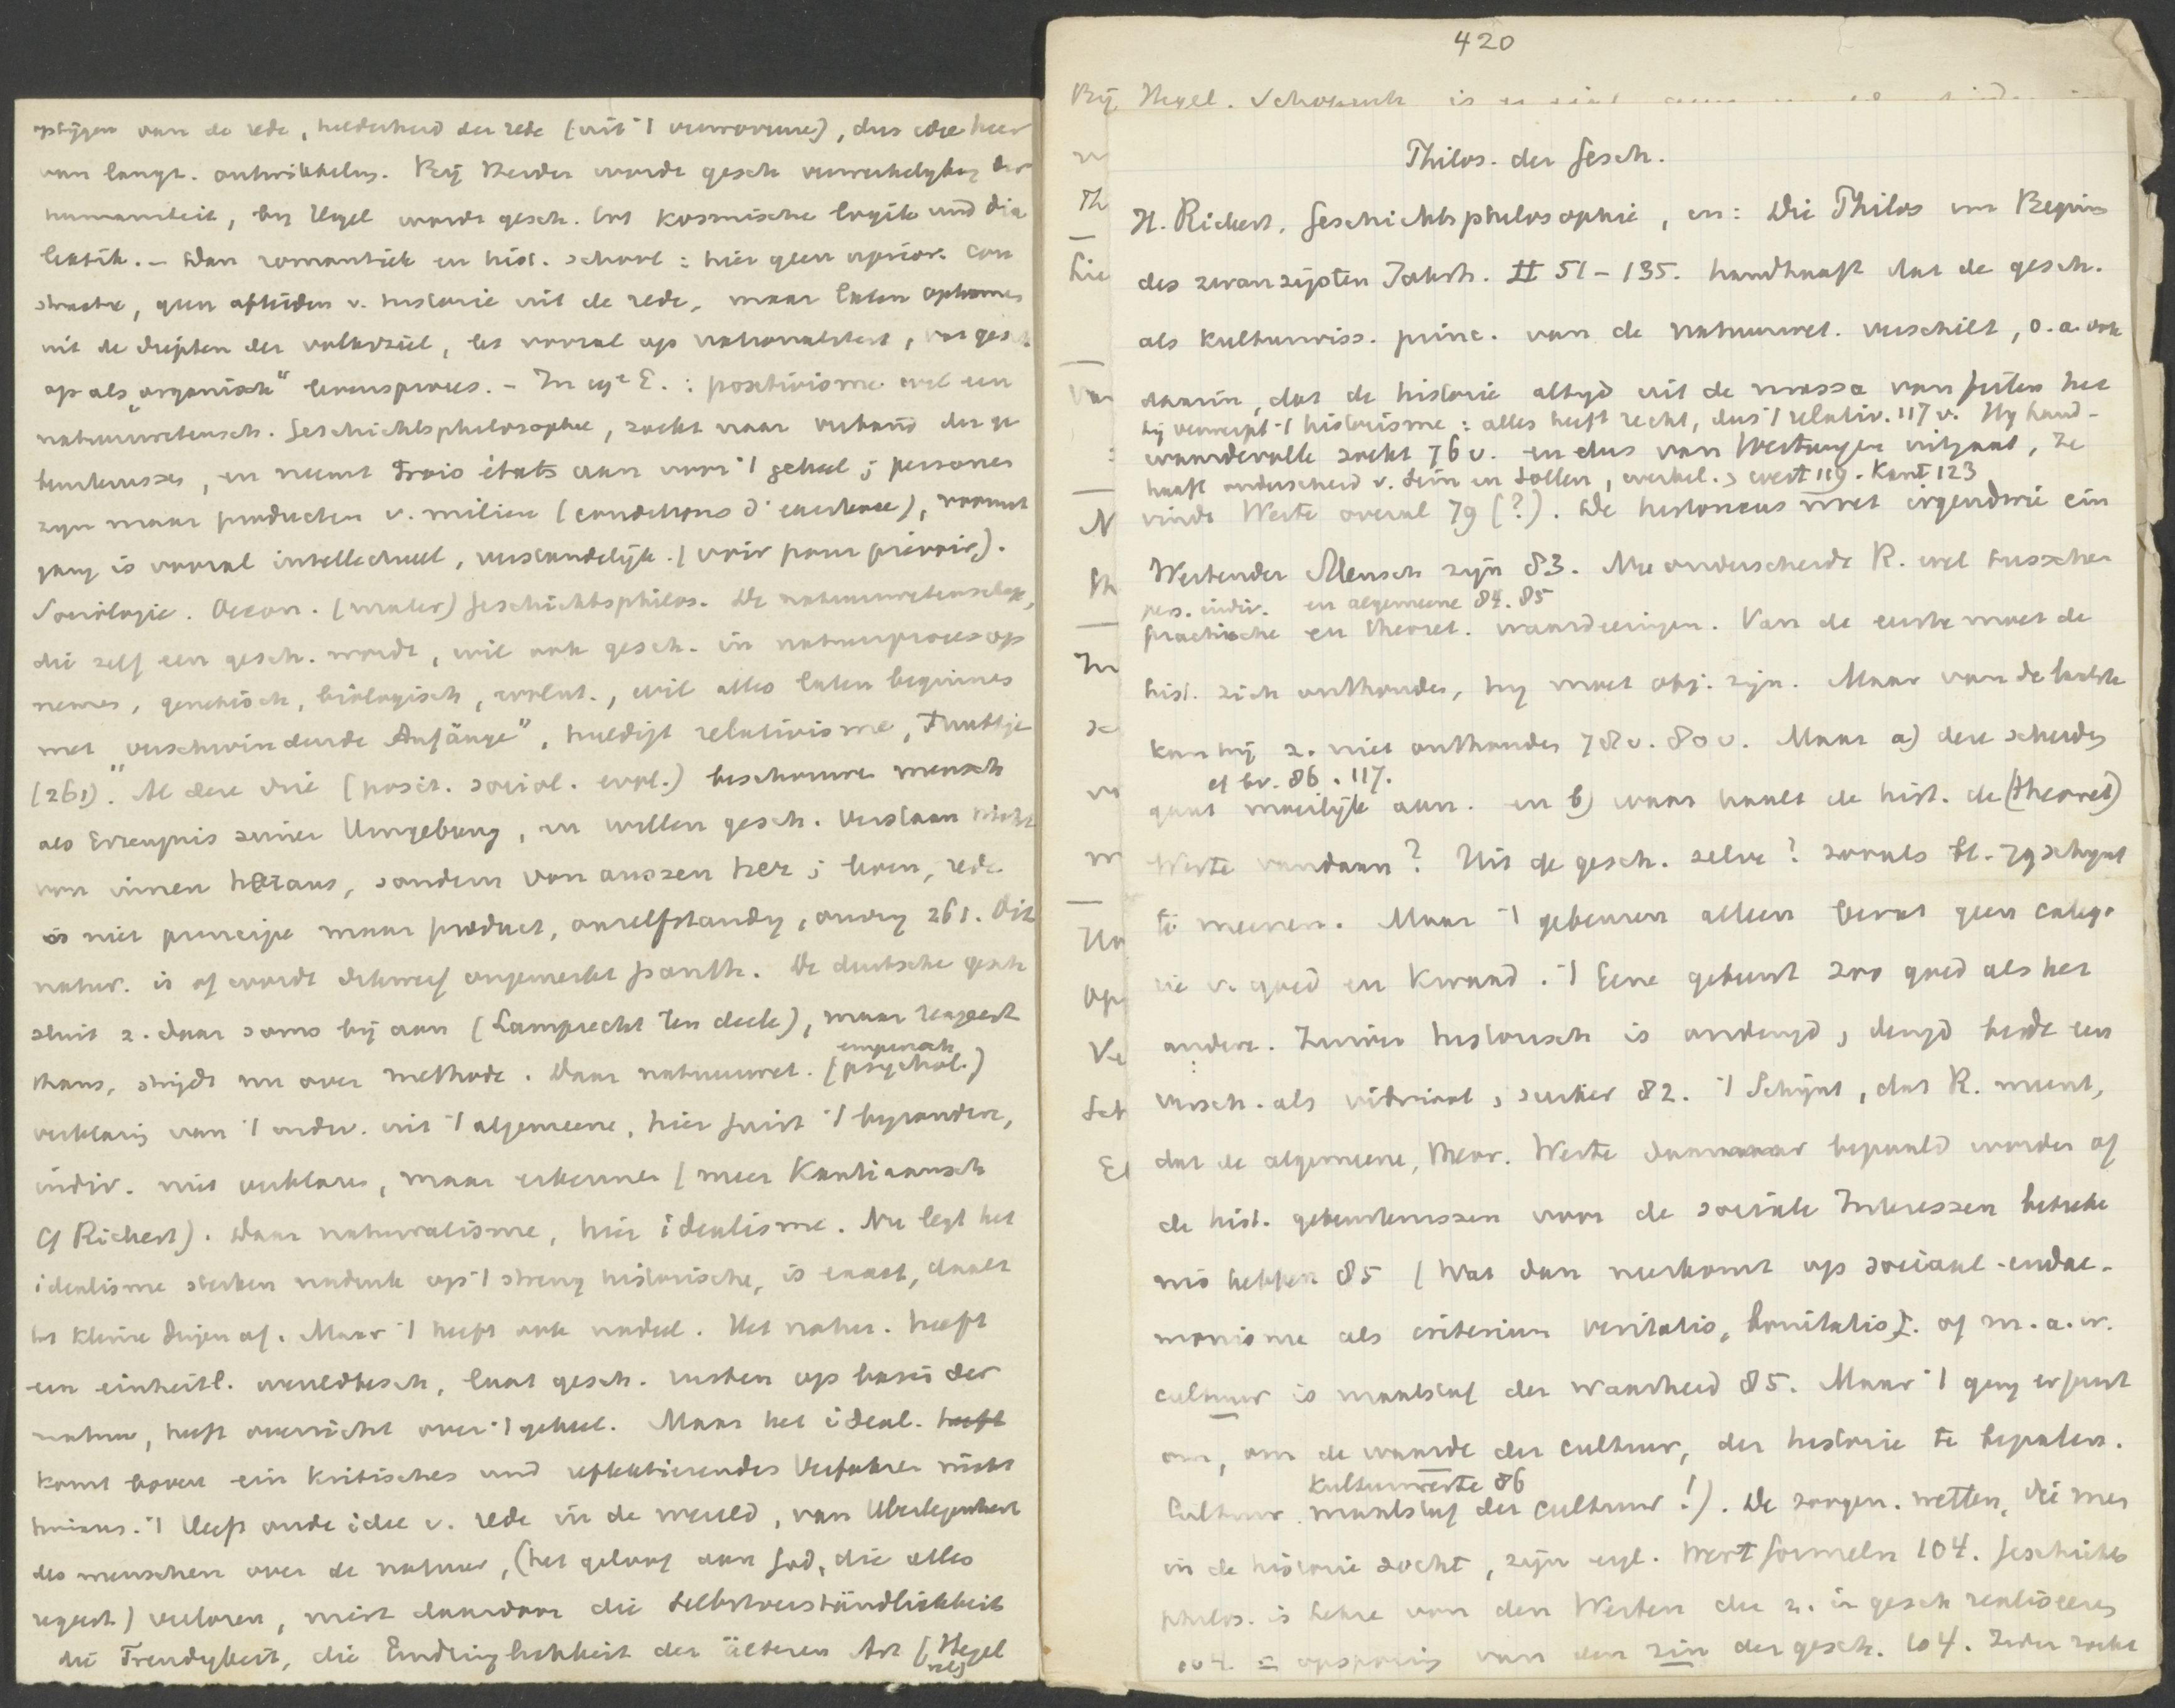 opstijgen van de rede, helderheid der rede (uit 't verworrene), dus idee hier
van langz. ontwikkeling. Bij Herder wordt gesch verwerkelyking der
humaniteit, by Hegel wordt gesch. tot kosmische logik und dia
lektik. – Dan romantiek en hist. school : hier geen aprior. con
structie, geen afleiden v. historie uit de rede, maar laten opkomen
uit de diepten der volksziel, let vooral op nationaliteit, vat gesch.
op als „organisch" levensproces. – In 19e E. : positivisme wel een
natuurwetensch. Geschichtsphilosophie, zoekt naar verband der ge
beurtenissen, en neemt trois états aan voor 't geheel ; personen
zyn maar producten v. milieu (conditions d'existence), vooruit
gang is vooral intellectueel, verstandelijk. (voir pour prévoir).
Sociologie. Oecon. (mater) Geschichtsphilos. De natuurwetenschap,
die zelf een gesch. wordt, wil ook gesch. in natuurproces op
nemen, genetisch, biologisch, evolut., wil alles laten beginnen
met „verschwindende Anfänge", huldigt relativisme,
(261). Al deze drie (posit. sociol. evol.) beschouwen mensch
als Erzeugnis seiner Umgebung, en willen gesch. verstaan nicht
von innen heraus, sondern von aussen her ; leven, rede
is niet principe maar product, onzelfstandig, onvry 261. Dit
natur. is of wordt dikwerf ongemerkt panth. De duitsche gesch
sluit z. daar soms bij aan (Lamprecht ten deele), maar reageert
thans, strijdt nu over methode. Daar natuurwet. (psychol.)
empirisch
verklaring van 't indiv. uit 't algemeene, hier juist 't byzondere,
indiv. niet verklaren, maar erkennen (meer Kantiaansch
cf Rickert). Daar naturalisme, hier idealisme. Nu legt het
idealisme sterken nadruk op 't streng historische, is exact, daalt
tot kleine dingen af. Maar 't heeft ook nadeel. Het natur. heeft
een einheitl. wereldbesch, laat gesch. rusten op basis der
natuur, heeft overzicht over 't geheel. Maar het ideal. heeft
komt boven ein kritisches und reflektierendes Verfahren nicht
hinaus. 't Heeft oude idee v. rede in de wereld, van Uberlegenheit
des menschen over de natuur, (het geloof aan God, die alles
regeert) verloren, mist daardoor die Selbstverständlichkeit
die Freudigkeit, die Eindringlichkeit der älteren Art (Hegel
420
Bij Hegel. Schopenh is
Philos. der Gesch.
H. Rickert, Geschichtsphilosophie, in : Die Philos im Beginn
des zwanzigsten Jahrh. II 51 – 135. handhaaft dat de gesch.
als Kulturwiss. princ. van de natuurwet. verschilt, o.a. ook
daarin, dat de historie altyd uit de massa van feiten het
hij verwerpt 't historisme : alles heeft recht, dus 't relativ. 117 v. Hy hand-
waardevolle zoekt 76 v. en dus van Wertungen uitgaat, ze
haaft onderscheid v. Sein en Sollen, werkel. > wert 119. Kant 123
vindt Werte overal 79 (?). De historicus moet irgendwie ein
Wertender Mensch zijn 83. Nu onderscheidt R. wel tusschen
pers. indiv. en algemeene 84. 85
practische en theoret. waardeeringen. Van de eerste moet de
hist. zich onthouden, hy moet obj. zyn. Maar van de laatste
kan hij z. niet onthouden 78 v. 80 v. Maar a) deze scheiding
cf bv. 86. 117.
gaat moeilijk aan. en b) waar haalt de hist. de (theoret)
Werte vandaan ? Uit de gesch. zelve ? zooals bl. 79 schynt
te meenen. Maar 't gebeuren alleen bevat geen catego
rie v. goed en kwaad. 't Eene gebeurt zoo goed als het
andere. Zuiver historisch is ondeugd, deugd beide een
versch. als vitriool, suiker 82. 't Schijnt, dat R. meent,
dat de algemeene, theor. Werte daarnaar bepaald worden of
de hist. gebeurtenissen voor de sociale Interessen beteeke
nis hebben 85 (wat dan neerkomt op sociaal-eudae-
monisme als criterium veritatis, bonitatis). of m.a.w.
cultuur is maatstaf der waarheid 85. Maar 't ging er juist
om, om de waarde der cultuur, der historie te bepalen.
Kulturwerte 86
Cultuur maatstaf der cultuur !). De zoogen. wetten, die men
in de historie zocht, zijn eigl. Wertformeln 104. Geschichts
philos. is Lehre von den Werten die z. in gesch realiseeren
104. = opsporing van den zin der gesch. 104. Ieder zoekt